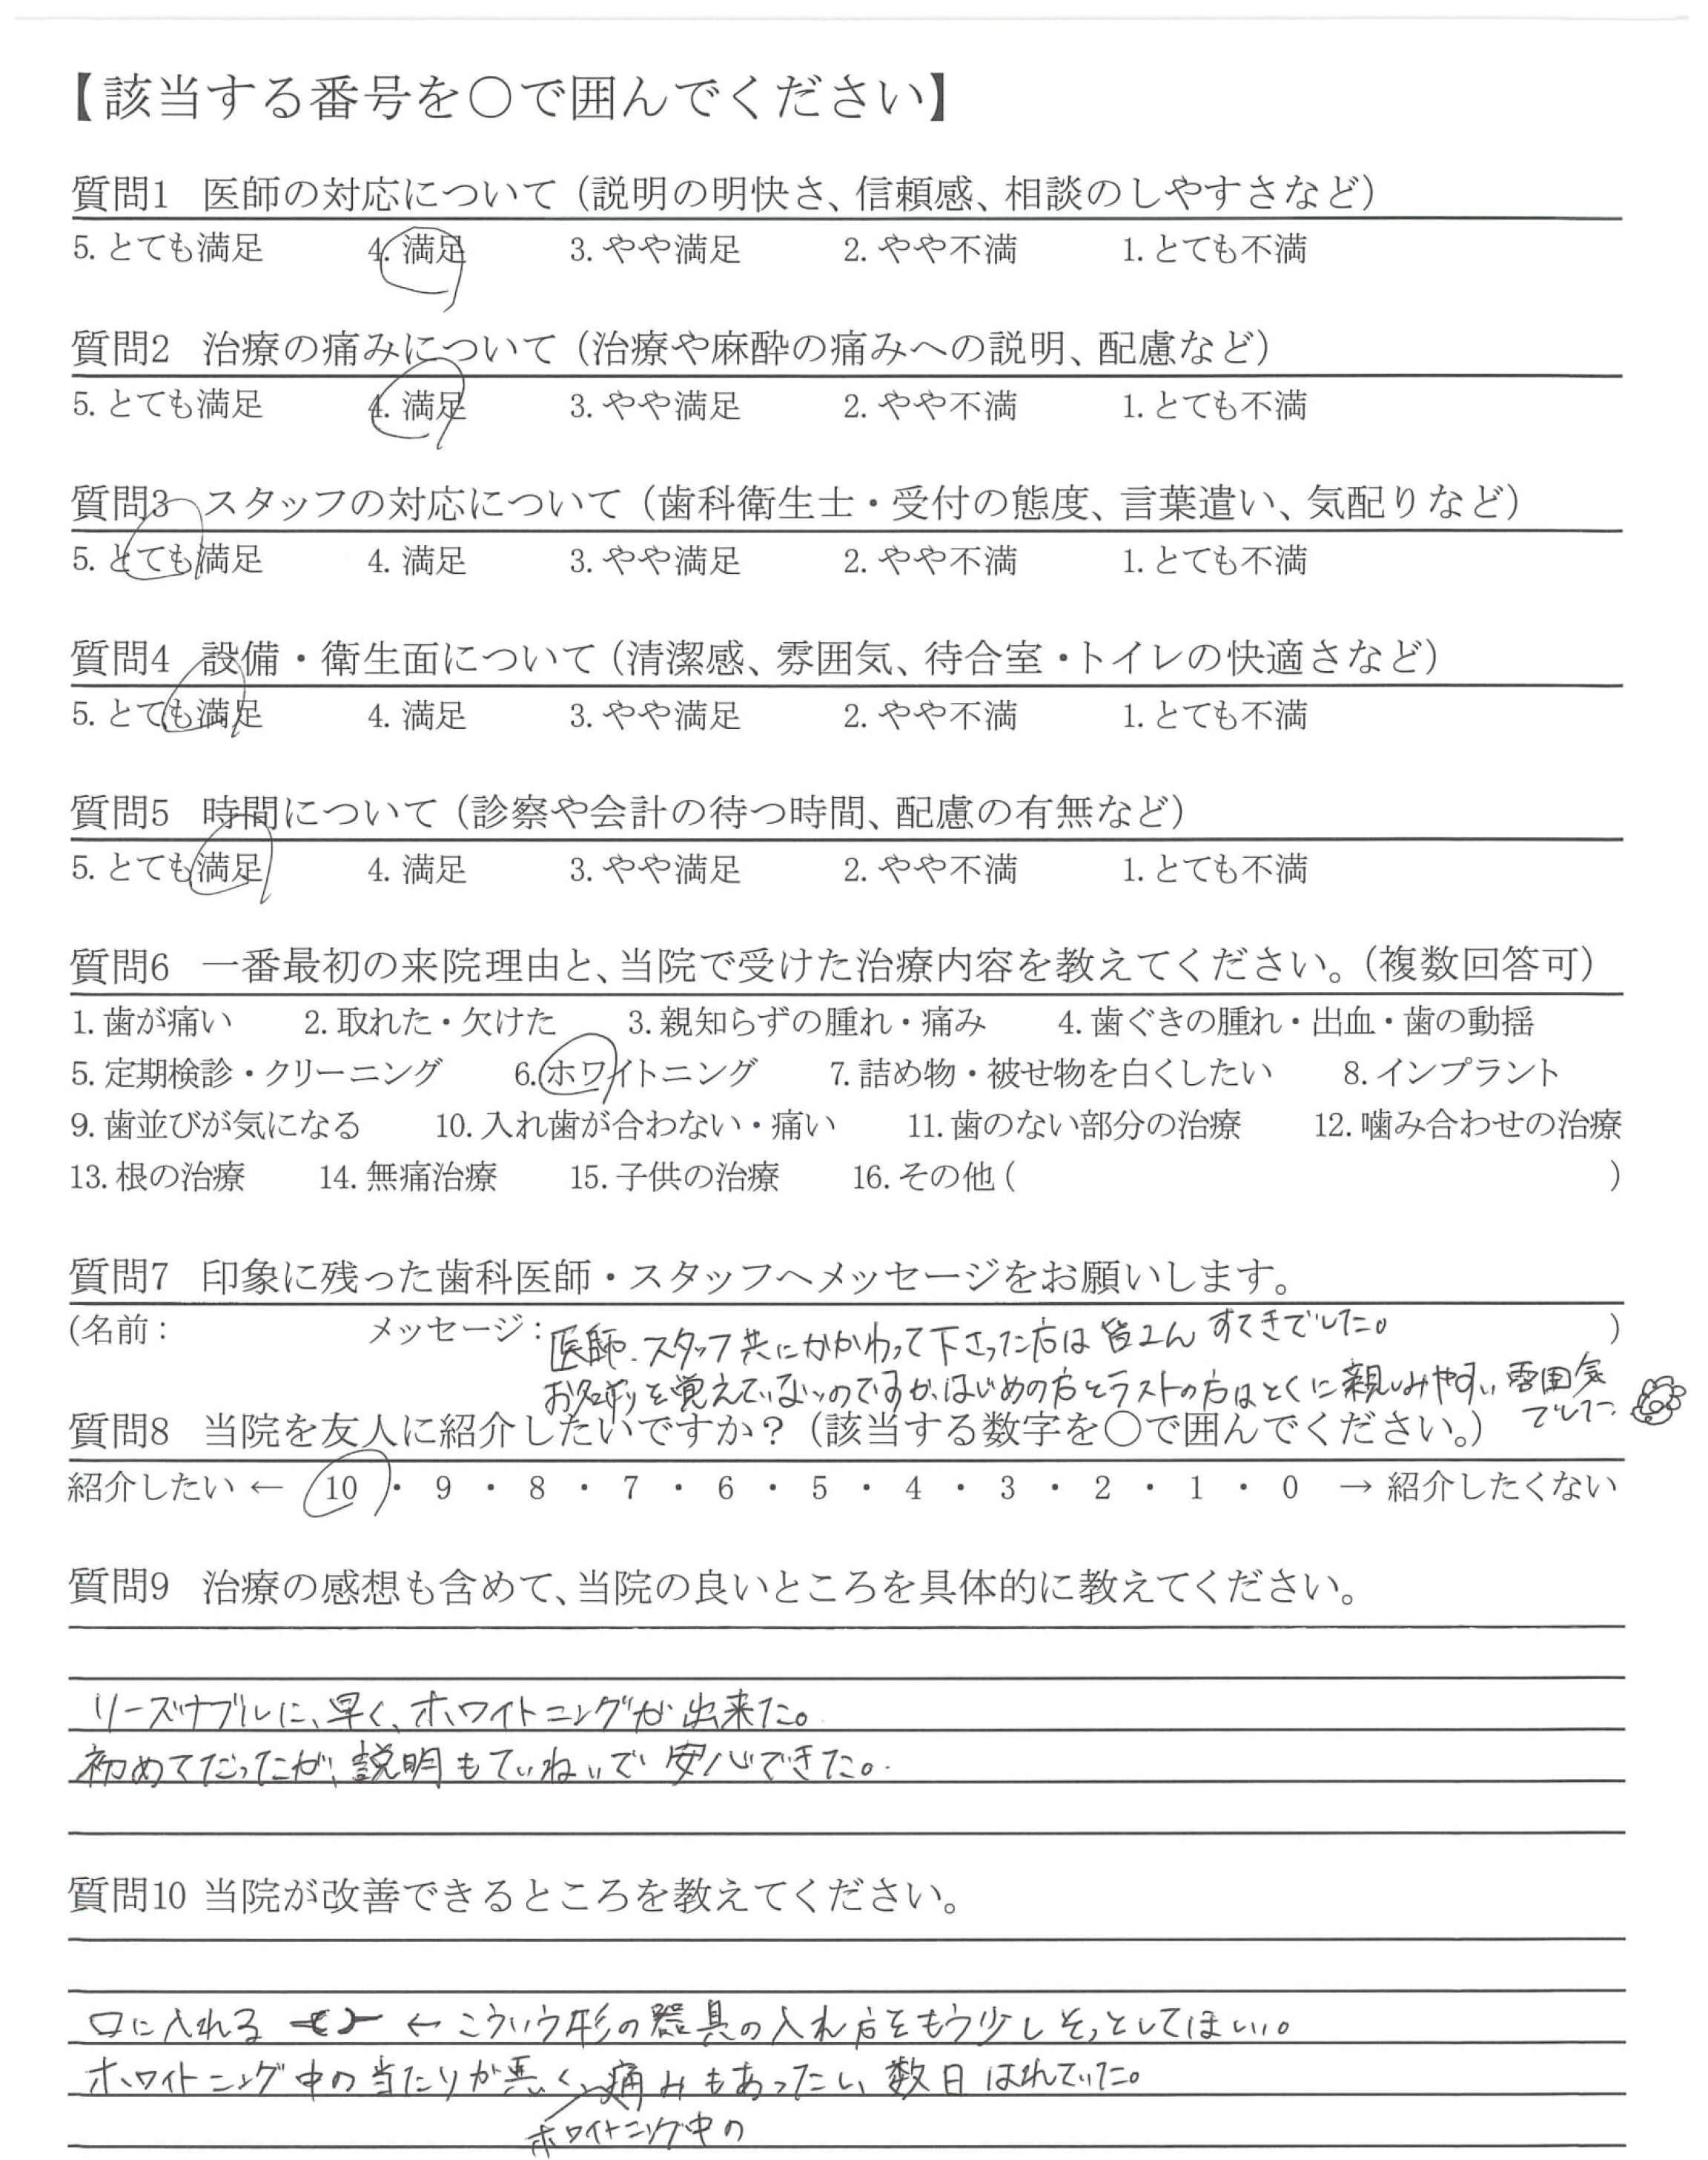 【該当する番号を○で囲んでください】
質問1 医師の対応について（説明の明快さ、信頼感、相談のしやすさなど）
5. とても満足 4. 満足 3. やや満足 2. やや不満 1. とても不満
質問2 治療の痛みについて（治療や麻酔の痛みへの説明、配慮など）
5. とても満足 4. 満足 3. やや満足 2. やや不満 1. とても不満
質問3 スタッフの対応について（歯科衛生士・受付の態度、言葉遣い、気配りなど）
5. とても満足 4. 満足 3. やや満足 2. やや不満 1. とても不満
質問4 設備・衛生面について（清潔感、雰囲気、待合室・トイレの快適さなど）
5. とても満足 4. 満足 3. やや満足 2. やや不満 1. とても不満
質問5 時間について（診察や会計の待つ時間、配慮の有無など）
5. とても満足 4. 満足 3. やや満足 2. やや不満 1. とても不満
質問6 一番最初の来院理由と、当院で受けた治療内容を教えてください。（複数回答可）
1. 歯が痛い 2. 取れた・欠けた 3. 親知らずの腫れ・痛み 4. 歯ぐきの腫れ・出血・歯の動揺
5. 定期検診・クリーニング 6. ホワイトニング 7. 詰め物・被せ物を白くしたい 8. インプラント
9. 歯並びが気になる 10. 入れ歯が合わない・痛い 11. 歯のない部分の治療 12. 噛み合わせの治療
13. 根の治療 14. 無痛治療 15. 子供の治療 16. その他（ ）
質問7 印象に残った歯科医師・スタッフへメッセージをお願いします。
(名前： メッセージ：医師、スタッフ共にかかわって下さった方は皆さんすてきでした。 )
お名前を覚えていないのですが、はじめの方とラストの方はとくに親しみやすい雰囲気
でした
質問8 当院を友人に紹介したいですか？（該当する数字を○で囲んでください。）
紹介したい ← 10 ・ 9 ・ 8 ・ 7 ・ 6 ・ 5 ・ 4 ・ 3 ・ 2 ・ 1 ・ 0 → 紹介したくない
質問9 治療の感想も含めて、当院の良いところを具体的に教えてください。
リーズナブルに、早く、ホワイトニングが出来た。
初めてだったが、説明もていねいで安心できた。
質問10 当院が改善できるところを教えてください。
口に入れる ← こういう形の器具の入れ方をもう少しそっとしてほしい。
ホワイトニング中の当たりが悪く、痛みもあったし、数日はれていた。
ホワイトニング中の